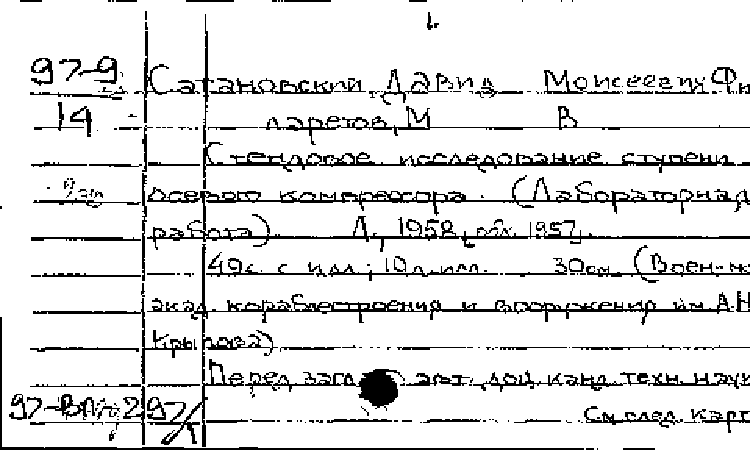 97-9 Сатановский, Давид Моисеевич Фи
14 ларетов, М В
Стендовое исследование ступени
осевого компрессора. (Лабораторная
работа) Л., 1958, [обл. 1957].
49с. с илл.; 10 л. илл. 30см. (Воен-мо
акад. кораблестроения и вооружения им. А.Н
Крылова)
Перед загл. авт. доц. канд. техн. наук
97- 2 97/1 См. след. карт